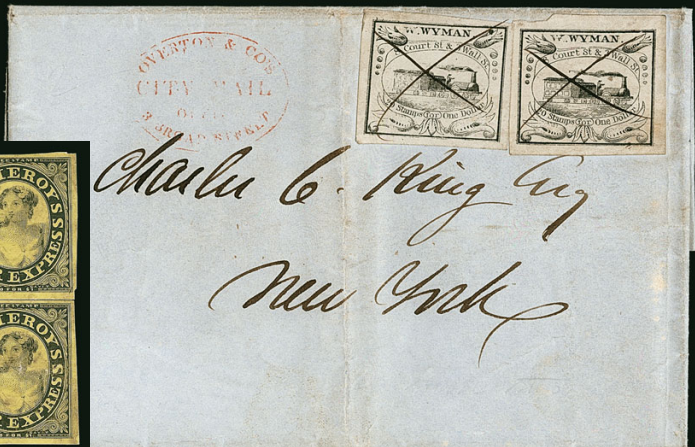 OVERTON & CO'S
CITY MAIL
3 BROAD STREET
W. WYMAN
Court St & 3 Wall St
20 Stamps for One Dollar
W. WYMAN
Court St & 3 Wall St
20 Stamps for One Dollar
Charles C. King Esq
New York
MEROYS
EXPRESS
MEROYS
EXPRESS